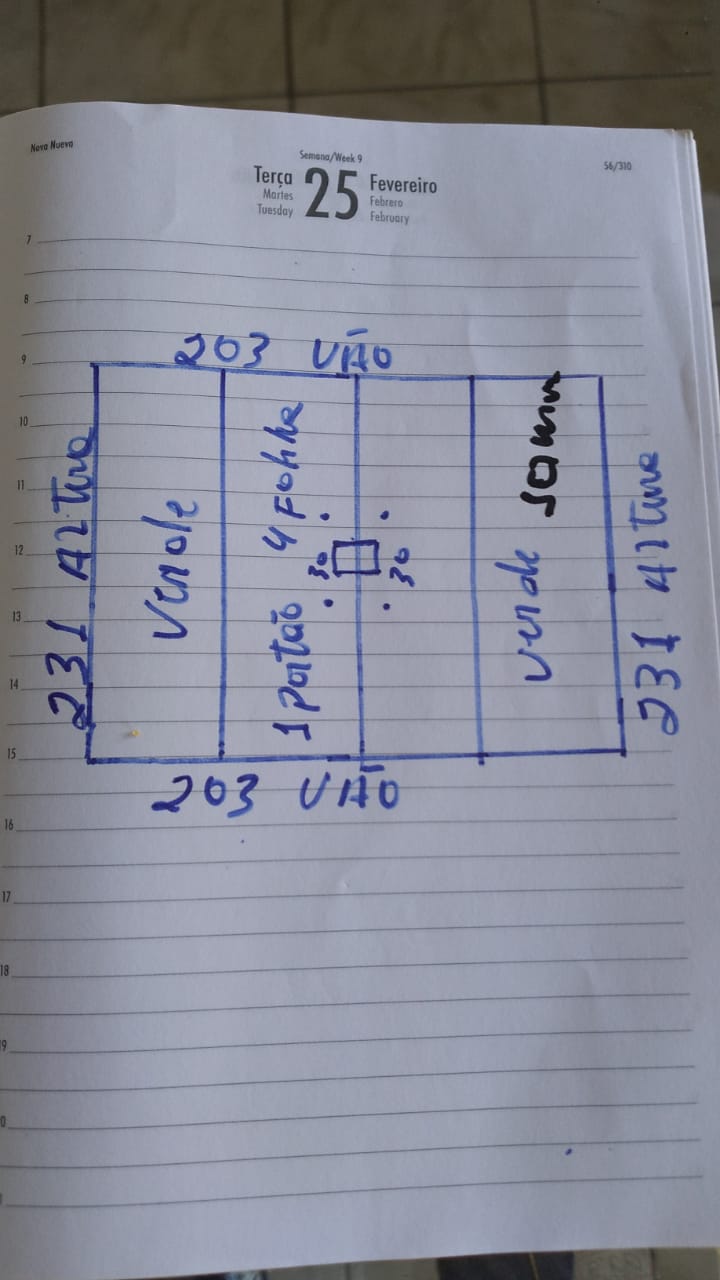 Nova Nueva
Semana/Week 9
56/310
Terça
Martes
Tuesday
25
Fevereiro
Febrero
February
7
8
9
10
11
12
13
14
15
16
17
18
19
203 VÃO
231 Altura
Verde
1 Portão 4 Folha
30
30
Verde
231 Altura
203 VÃO